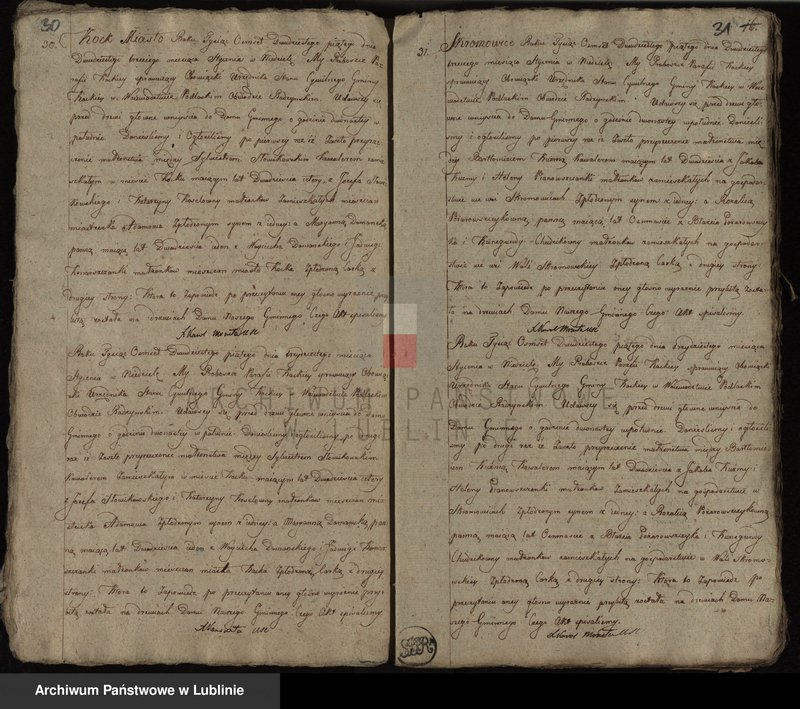 30
30. Kock Miasto Roku Tysiąc Osmset Dwudziestego piątego dnia
Dwudziestego trzeciego miesiąca Stycznia w Niedzielę. My Proboszcz Pa-
rafii Kockiey sprawuiący Obowiązki Urzędnika Stanu Cywilnego Gminy
Kockiey w Woiewodztwie Podlaskim Obwodzie Radzynskim. Udawszy się
przed drzwi głowne weyscia do Domu Gminnego o godzinie dwunastey w
południe Donieslismy i Ogłosilismy po pierwszy raz iż Zaszło przyrze-
czenie małżenstwa między Sylwestrem Słowikowskim kawalerem zamie-
szkałym w miescie Kocku maiącym lat Dwadziescia cztery, z Jozefa Słowi-
kowskiego i Katarzyny małżonkow Zamieszkałych mieszczan
miasteczka Adamowa Zpłodzonym synem z iedney: a Maryanną Domanską
panną maiącą lat Dwadziescia ieden z Woyciecha Domanskiego i Jadwigi
małżonkow mieszczan miasta Kocka Zpłodzoną Corką z
drugiey strony: Ktora to Zapowiedz po przeczytaniu oney głosno wyraznie przy-
bitą została na drzwiach Domu Naszego Gminnego. Czego Akt spisalismy.
X Karol
Roku Tysiąc Osmset Dwudziestego piątego dnia trzydziestego miesiąca
Stycznia w Niedzielę. My Proboszcz Parafii Kockiey sprawuiący Obowią-
zki Urzędnika Stanu Cywilnego Gminy Kockiey Woiewodztwie Podlaskim
Obwodzie Radzynskim. Udawszy się przed drzwi głowne weyscia do Domu
Gminnego o godzinie dwunastey w południe. Donieslismy i ogłosilismy po drugi
raz iż Zaszło przyrzeczenie małżenstwa między Sylwestrem Słowikowskim
kawalerem Zamieszkałym w miescie Kocku, maiącym lat Dwadziescia cztery
z Jozefa Słowikowskiego i Katarzyny małżonkow mieszczan mia-
steczka Adamowa Zpłodzonym synem z iedney: a Maryanną Domanską pan-
ną maiącą lat Dwadziescia ieden z Woyciecha Domanskiego i Jadwigi
małżonkow mieszczan miasta Kocka Zpłodzoną Corką z drugiey
strony: Ktora to Zapowiedz po przeczytaniu oney głosno wyraznie przy-
bitą została na drzwiach Domu Naszego Gminnego. Czego Akt spisalismy
31
31. Skromowice Roku Tysiąc Osmset Dwudziestego piątego dnia Dwudziestego
trzeciego miesiąca Stycznia w Niedzielę. My Proboszcz Parafii Kockiey
sprawuiący Obowiązki Urzędnika Stanu Cywilnego Gminy Kockiey w Woie-
wodztwie Podlaskim Obwodzie Radzynskim. Udawszy się przed drzwi głow-
ne weyscia do Domu Gminnego o godzinie dwunastey w południe. Doniesli-
smy i ogłosilismy po pierwszy raz iż Zaszło przyrzeczenie małżenstwa mię-
dzy Bartłomieiem Kuzmą Kawalerem maiącym lat Dwadziescia z Jakuba
Kuzmy i Heleny małżonkow zamieszkałych na gospodar-
stwie we wsi Skromowicach Zpłodzonym synem z iedney: a Rozalią
panną maiącą lat z Błażeia
i Kunegundy małżonkow zamieszkałych na gospodar-
stwie we wsi Woli Skromowskiey Zpłodzoną Corką z drugiey strony.
Ktora to Zapowiedz po przeczytaniu oney głosno wyraznie przybitą zosta-
ła na drzwiach Domu Naszego Gminnego. Czego Akt spisalismy.
X Karol
Roku Tysiąc Osmset Dwudziestego piątego dnia trzydziestego miesiąca
Stycznia w Niedzielę. My Proboszcz Parafii Kockiey sprawuiący Obowiązki
Urzędnika Stanu Cywilnego Gminy Kockiey w Woiewodztwie Podlaskim
Obwodzie Radzynskim. Udawszy się przed drzwi głowne weyscia do
Domu Gminnego o godzinie dwunastey w południe. Donieslismy i ogłosili-
smy po drugi raz iż Zaszło przyrzeczenie małżenstwa między Bartłomie-
iem Kuzmą Kawalerem maiącym lat Dwadziescia z Jakuba Kuzmy i
Heleny małżonkow Zamieszkałych na gospodarstwie w
Skromowicach Zpłodzonym synem z iedney: a Rozalią
panną maiącą lat z Błażeia i Kunegundy
małżonkow zamieszkałych na gospodarstwie w Woli Skromo-
wskiey Zpłodzoną Corką z drugiey strony: Ktora to Zapowiedz po
przeczytaniu oney głosno wyraznie przybitą została na drzwiach Domu Na-
szego Gminnego Czego Akt spisalismy.
X Karol
ARCHIWUM PAŃSTWOWE
W LUBLINIE
Archiwum Państwowe w Lublinie